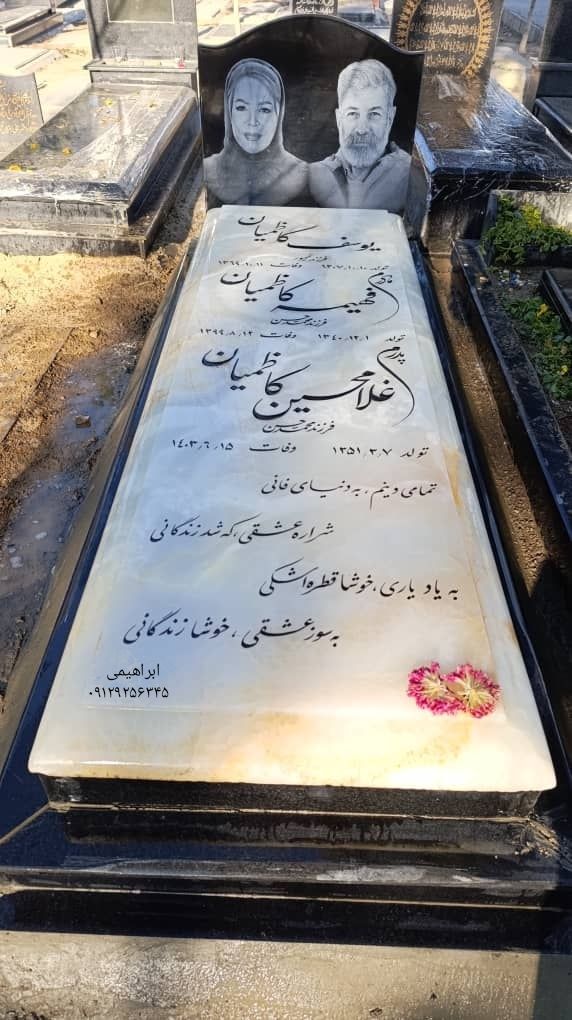 یوسف کاظمیان
تولد ۱۳۶۷٫۱۰٫۱۰ وفات ۱۳۶۹٫۱۰٫۱۱
مادرم
فهیمه کاظمیان
فرزند محمدحسن
تولد ۱۳۴۰٫۱۲٫۱ وفات ۱۳۹۹٫۸٫۱۲
پدرم
غلامحسین کاظمیان
فرزند محمدحسین
تولد ۱۳۵۱٫۳٫۷ وفات ۱۴۰۳٫۶٫۱۵
تمامی دینم ، به دنیای فانی
شراره عشقی ، که شد زندگانی
به یاد یاری ، خوشا قطره اشکی
به سوز عشقی ، خوشا زندگانی
ابراهیمی
۰۹۱۲۹۲۵۶۳۴۵